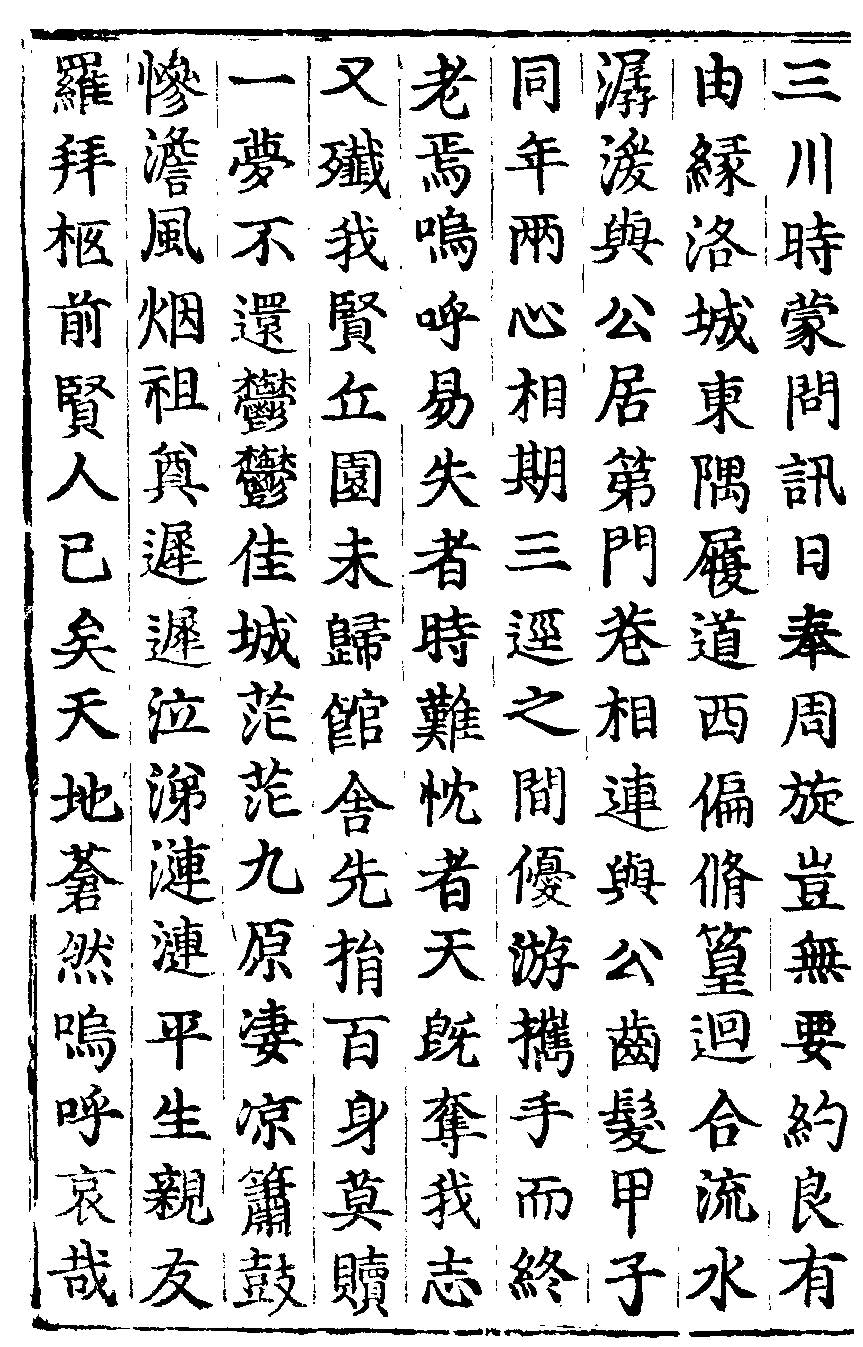 三川時蒙問訊日奉周旋豈無要約良有
由縁洛城東隅履道西偏脩篁迴合流水
潺湲與公居第門巷相連與公齒髮甲子
同年兩心相期三逕之間優游攜手而終
老焉嗚呼易失者時難忱者天旣奪我志
又殲我賢丘園未歸館舎先捐百身莫贖
一夢不還鬱鬱佳城茫茫九原凄凉簫鼓
慘澹風烟祖奠遲遲泣涕漣漣平生親友
羅拜柩前賢人已矣天地蒼然嗚呼哀哉